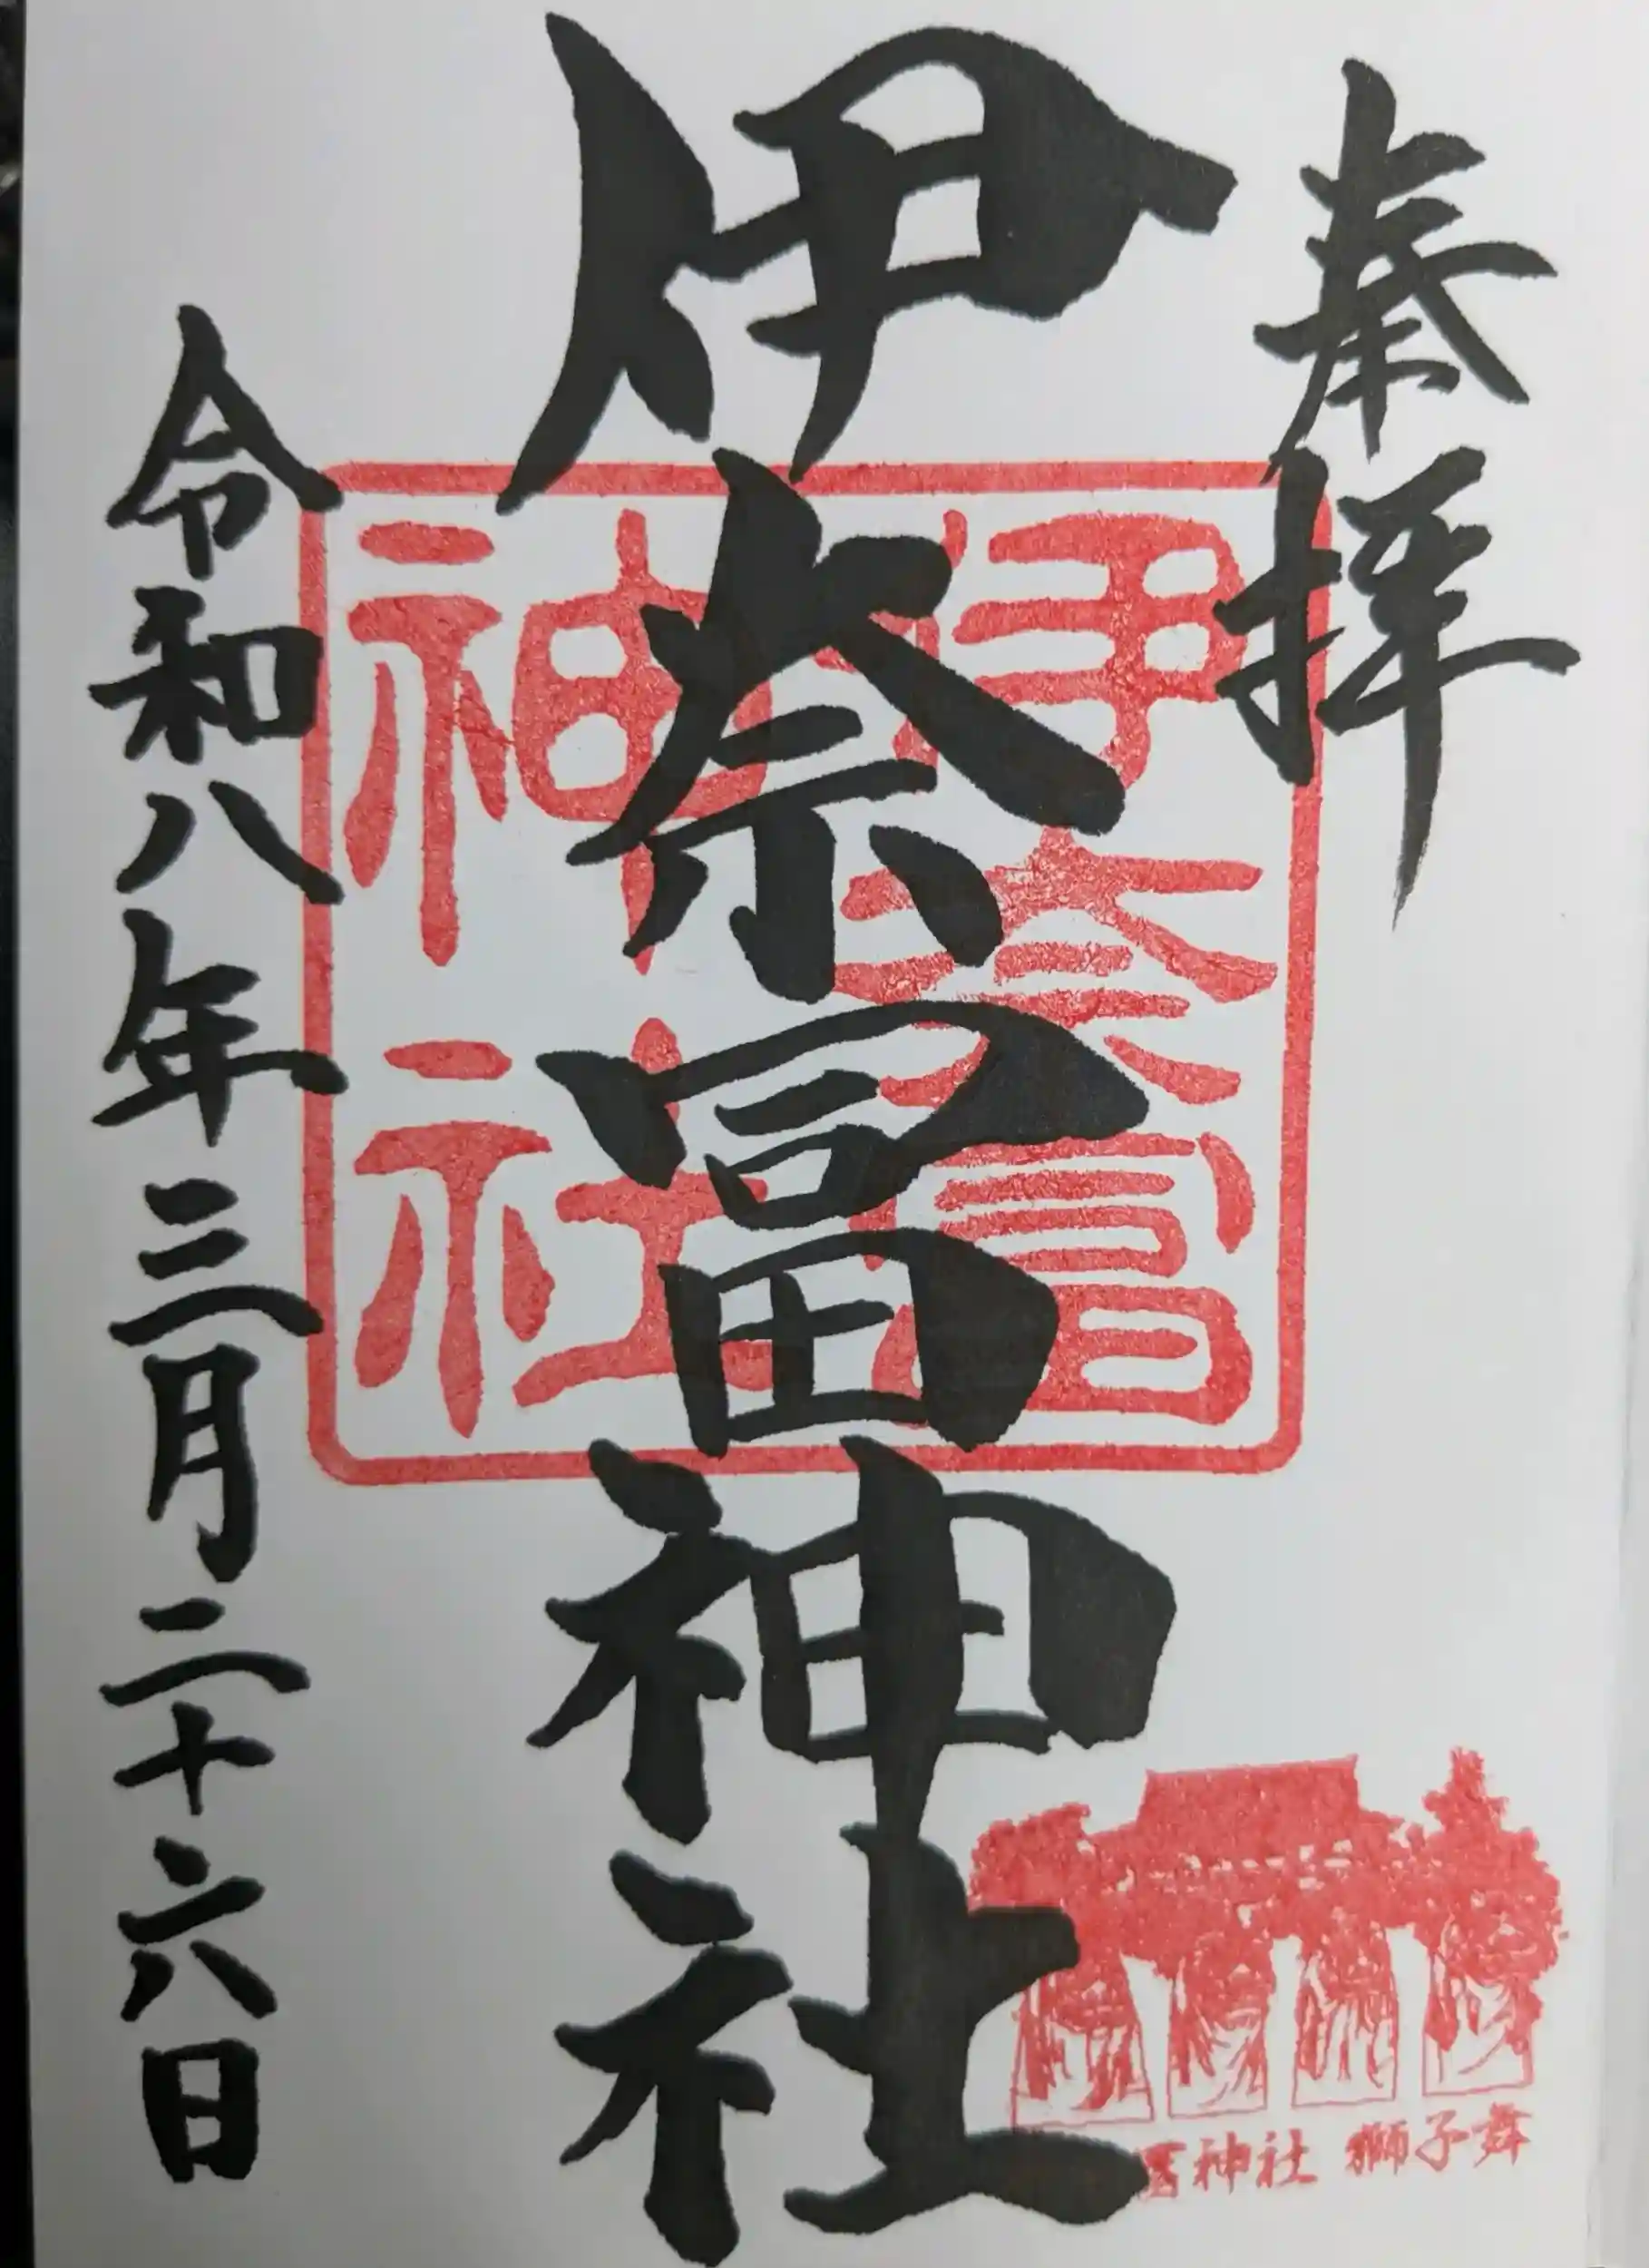 奉拝
伊奈冨神社
伊奈冨
神社
冨神社 獅子舞
令和八年三月二十六日